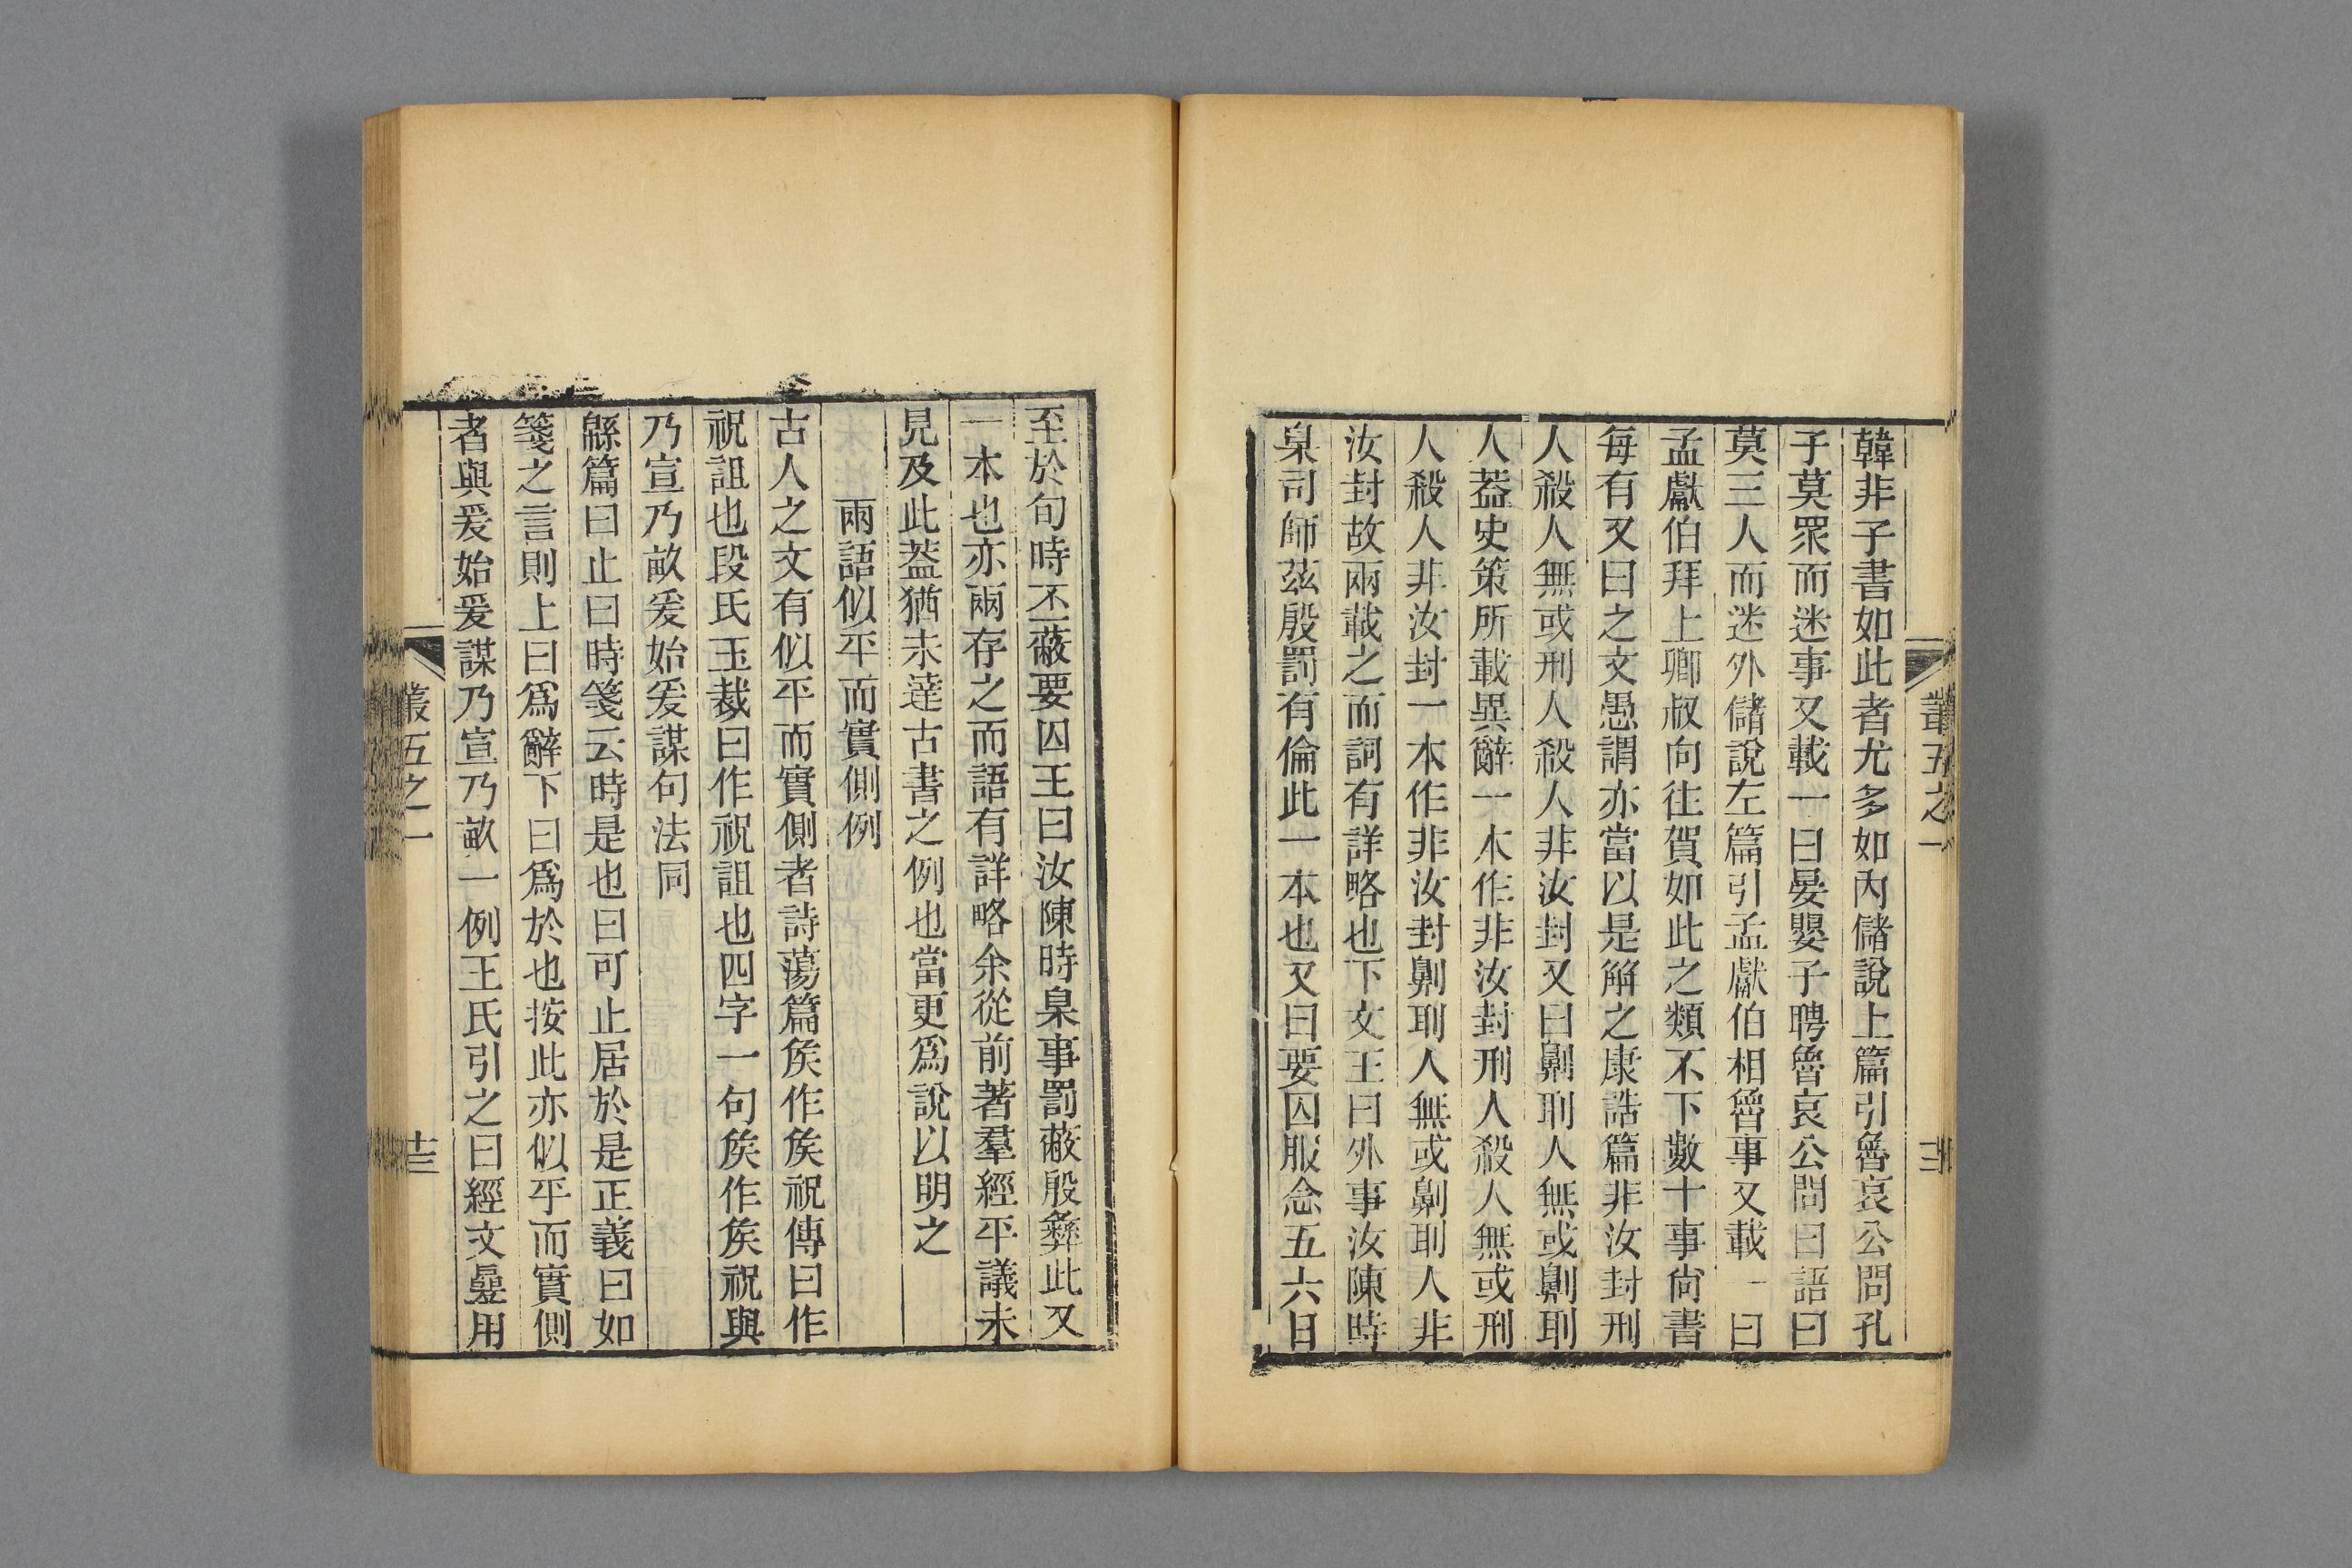 叢五之一
韓非子書如此者尤多如內儲說上篇引魯哀公問孔
子莫眾而迷事又載一曰晏嬰子聘魯哀公問曰語曰
莫三人而迷外儲說左篇引孟獻伯相魯事又載一曰
孟獻伯拜上卿叔向往賀如此之類不下數十事尙書
每有又曰之文愚謂亦當以是解之康誥篇非汝封刑
人殺人無或刑人殺人非汝封又曰劓刵人無或劓刵
人葢史策所載異辭一本作非汝封刑人殺人無或刑
人殺人非汝封一本作非汝封劓刵人無或劓刵人非
汝封故兩載之而詞有詳略也下文王曰外事汝陳時
臬司師茲殷罰有倫此一本也又曰要囚服念五六日
至於句時丕蔽要囚王曰汝陳時臬事罰蔽殷彝此又
一本也亦兩存之而語有詳略余從前著羣經平議未
見及此葢猶未達古書之例也當更爲說以明之
兩語似平而實側例
古人之文有似平而實側者詩蕩篇矦作矦祝傳曰作
祝詛也段氏玉裁曰作祝詛也四字一句矦作矦祝與
乃宣乃畝爰始爰謀句法同
緜篇曰止曰時箋云時是也曰可止居於是正義曰如
箋之言則上曰爲辭下曰爲於也按此亦似平而實側
者與爰始爰謀乃宣乃畝一例王氏引之曰經文曡用
叢五之一
十三